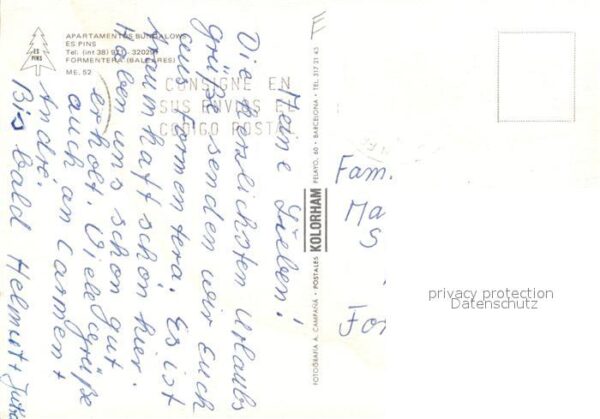 APARTAMENTOS BUNGALOWS
ES PINS
Tel. (int 38) 971 - 32029
FORMENTERA (BALEARES)
ME. 52
ES
PINS
CONSIGNE EN
SUS ENVIOS EL
CODIGO POSTAL
Meine Lieben!
Die herzlichsten Urlaubs
grüße senden wir Euch
aus Formentera. Es ist
traumhaft schön hier.
Haben uns schon gut
erholt. Viele Grüße
auch an Carmen +
André.
Bis bald Helmut + Jutta
FOTOGRAFIA A. CAMPAÑÁ - POSTALES KOLORHAM PELAYO, 60 - BARCELONA - TEL. 317 21 43
F
Fam.
Ma
S
For
privacy protection
Datenschutz